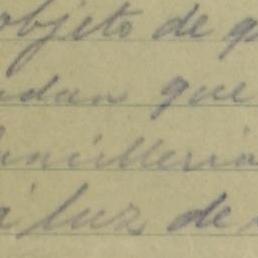 objeto de q
udan que
ancilleria
a luz de